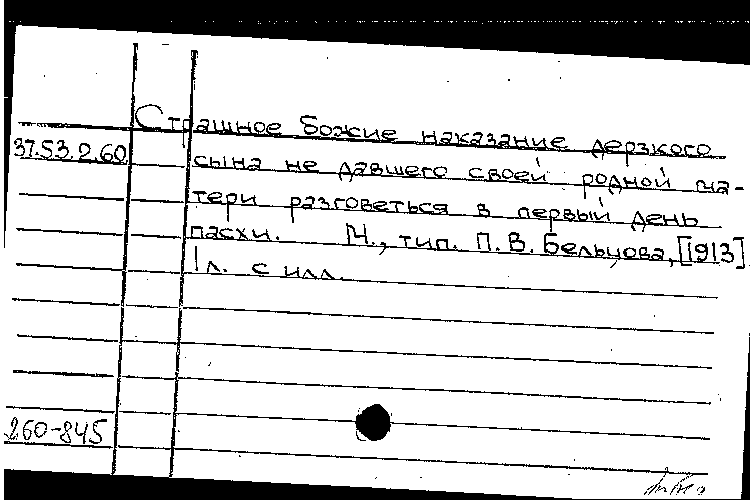 Страшное Божие наказание дерзкого
37.53.2.60
сына не давшего своей родной ма-
тери разговеться в первый день
пасхи. М., тип. П. В. Бельцова, [1913]
1 л. с илл.
260-845